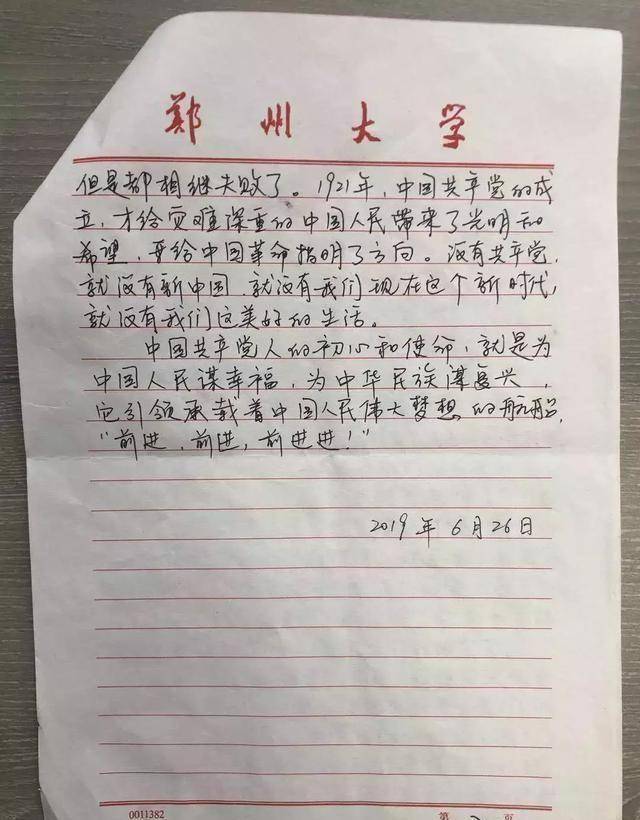 郑州大学
但是都相继失败了。1921年,中国共产党的成
立,才给灾难深重的中国人民带来了光明和
希望,更给中国革命指明了方向。没有共产党,
就没有新中国,就没有我们现在这个新时代,
就没有我们这美好的生活。
中国共产党人的初心和使命,就是为
中国人民谋幸福,为中华民族谋复兴,
它引领承载着中国人民伟大梦想的航船,
“前进,前进,前进进!”
2019年6月26日
0011382
第 页